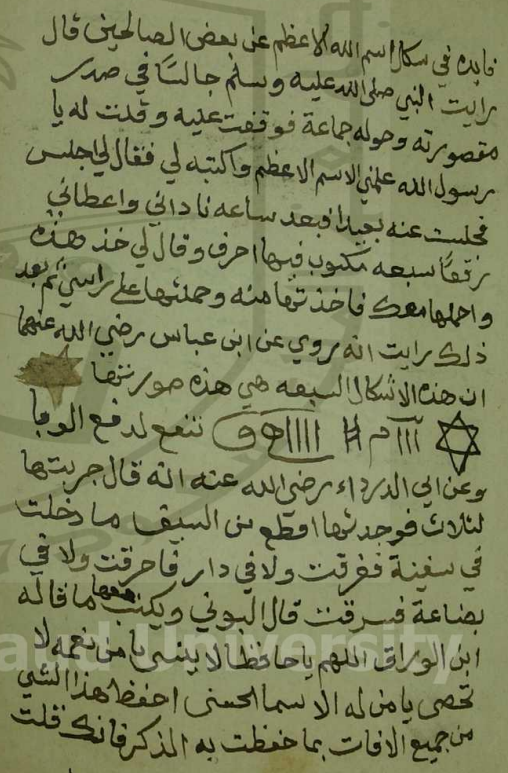 فايده في شكل اسم الله الاعظم عن بعض الصالحين قال
رايت النبي صلى الله عليه وسلم جالسا في صدر
مقصورته وحوله جماعة فوقفت عليه وقلت له يا
رسول الله علمني الاسم الاعظم واكتبه لي فقال لي اجلس
فجلست عنه بعيدا فبعد ساعه ناداني واعطاني
رقعا سبعه مكتوب فيها احرف وقال لي خذ هذه
واحملها معك فاخذتها منه وحملتها على راسي ثم بعد
ذلك رايت انه روي عن ابن عباس رضي الله عنهما
ان هذه الاشكال السبعه هي هذه صورتها
تنفع لدفع الوبا
وعن ابي الدرداء رضي الله عنه انه قال جربتها
لثلاث فوجدتها اقطع من السيف ما دخلت
في سفينة فغرقت ولا في دار فاحرقت ولا في
بضاعة فسرقت قال البوني ويكتب معها ما قاله
ابن الوراق اللهم يا حافظا لا ينسى يا من نعمه لا
تحصى يا من له الاسما الحسنى احفظ هذا الشي
من جميع الافات بما حفظت به الذكر فانك قلت
aud University